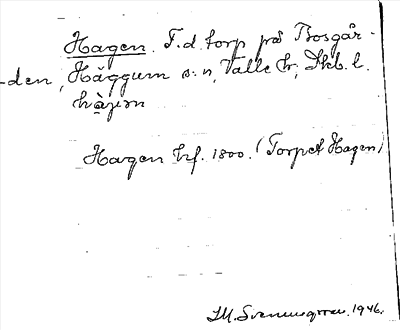 Hagen. F.d. torp på Bosgår-
-den, Häggum s:n, Valle hr, Skb. l.
hàgen
Hagen hf. 1800. (Torpet Hagen)
1946.